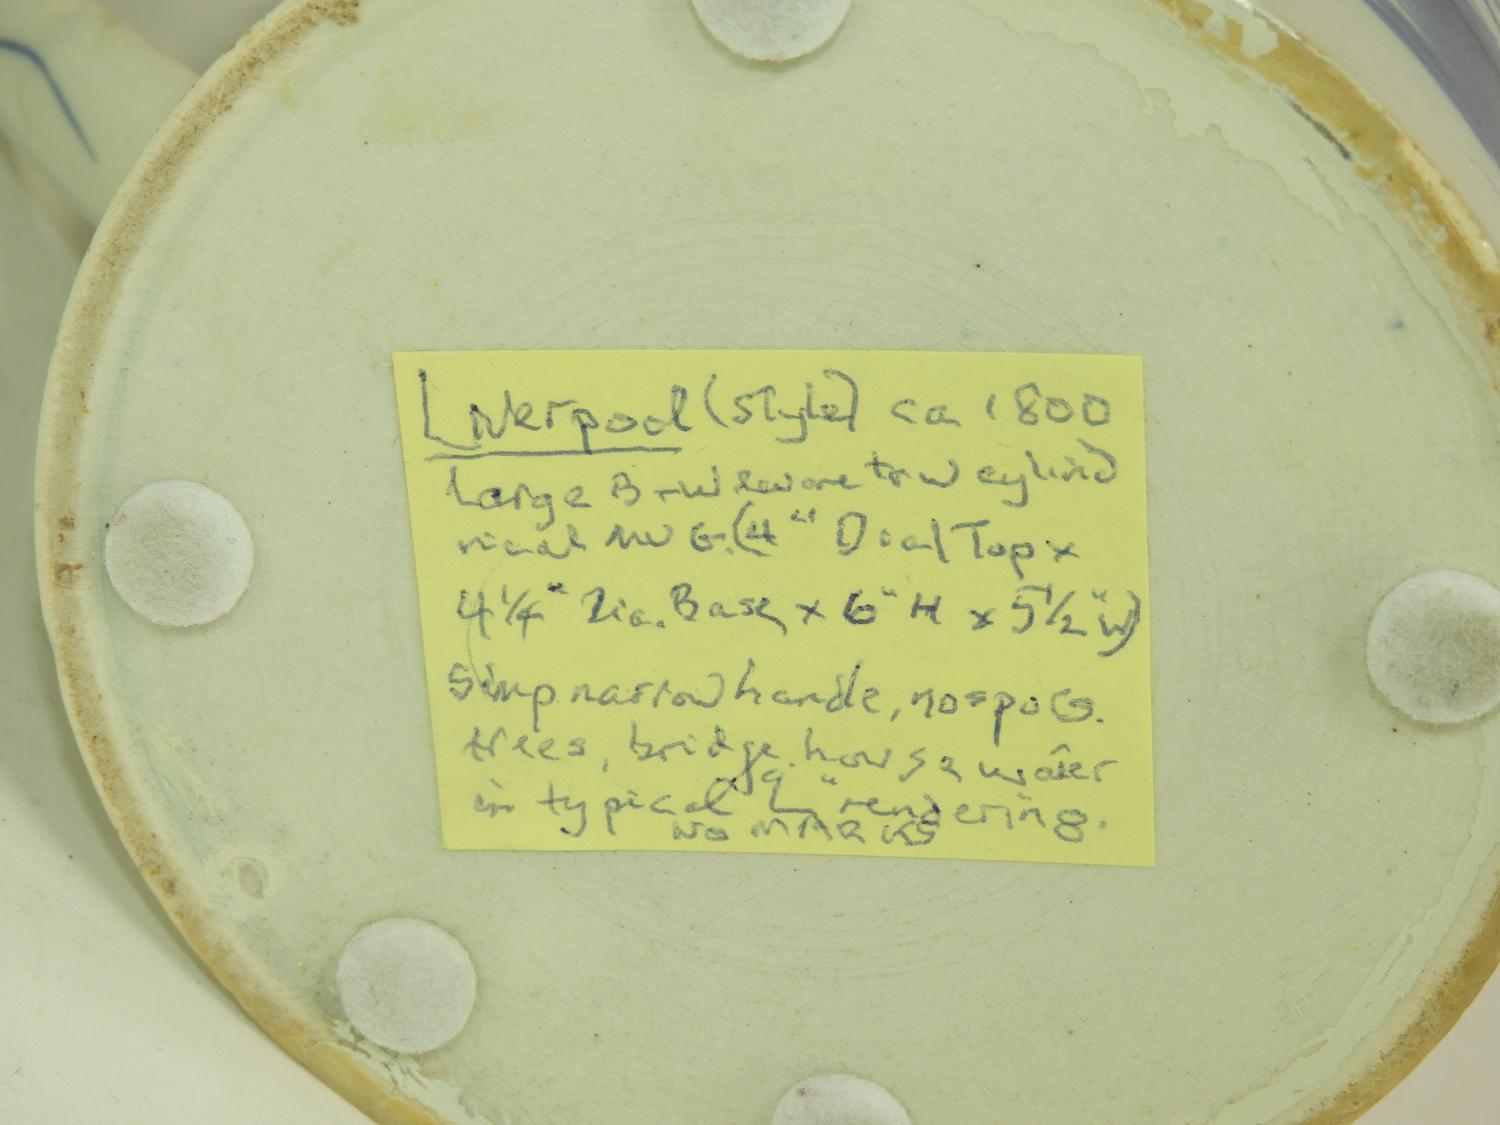 Liverpool (style) ca 1800
Large B+W cylind
rical MUG. (4" Dial Top x
4¼" Dia. Base x 6" H x 5½" W)
Simp narrow handle, no spoG.
trees, bridge, house water
in typical "Lg" rendering.
NO MARKS